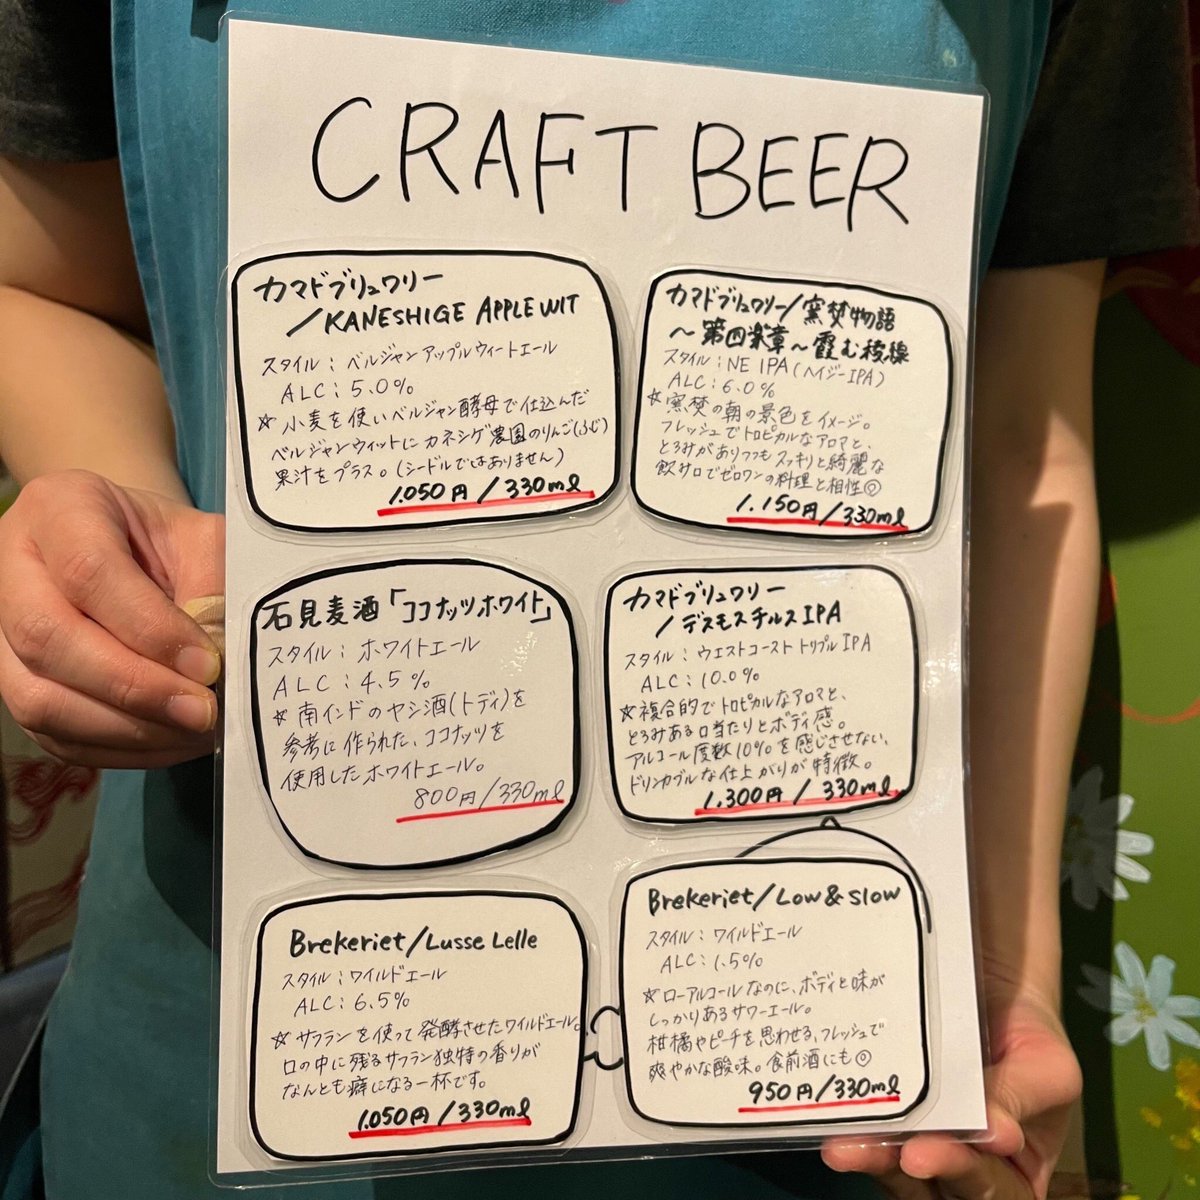 CRAFT BEER
カマドブリュワリー
/KANESHIGE APPLE WIT
スタイル：ベルジャンアップルウィートエール
ALC：5.0%
☆小麦を使いベルジャン酵母で仕込んだ
ベルジャンウィットにカネシゲ農園のりんご(ふじ)
果汁をプラス。(シードルではありません)
1.050円/330ml
カマドブリュワリー/窯焚物語
～第四楽章～霞む稜線
スタイル：NE IPA(ヘイジーIPA)
ALC：6.0%
☆窯焚の朝の景色をイメージ。
フレッシュでトロピカルなアロマと、
とろみがありつつもスッキリと綺麗な
飲み口でゼロワンの料理と相性◎
1.150円/330ml
石見麦酒「ココナッツホワイト」
スタイル：ホワイトエール
ALC：4.5%
☆南インドのヤシ酒(トディ)を
参考に作られた、ココナッツを
使用したホワイトエール。
800円/330ml
カマドブリュワリー
/デスモスチルスIPA
スタイル：ウエストコーストトリプルIPA
ALC：10.0%
☆複合的でトロピカルなアロマと、
とろみある口当たりとボディ感。
アルコール度数10%を感じさせない、
ドリンカブルな仕上がりが特徴。
1.300円/330ml
Brekeriet/Lusse Lelle
スタイル：ワイルドエール
ALC：6.5%
☆サフランを使って発酵させたワイルドエール。
口の中に残るサフラン独特の香りが
なんとも癖になる一杯です。
1.050円/330ml
Brekeriet/Low & Slow
スタイル：ワイルドエール
ALC：1.5%
☆ローアルコールなのに、ボディと味が
しっかりあるサワーエール。
柑橘やピーチを思わせる、フレッシュで
爽やかな酸味。食前酒にも◎
950円/330ml